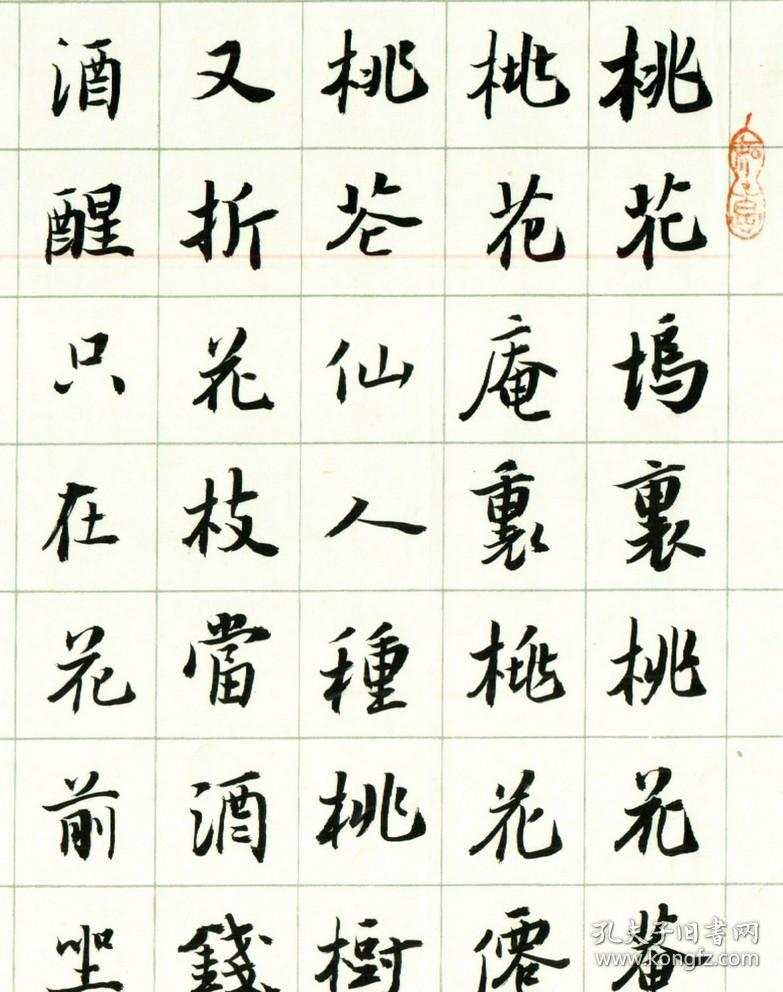 桃花塢裏桃花菴
桃花庵裏桃花僊
桃花仙人種桃樹
又折花枝當酒錢
酒醒只在花前坐
孔夫子旧書网
www.kongfz.com